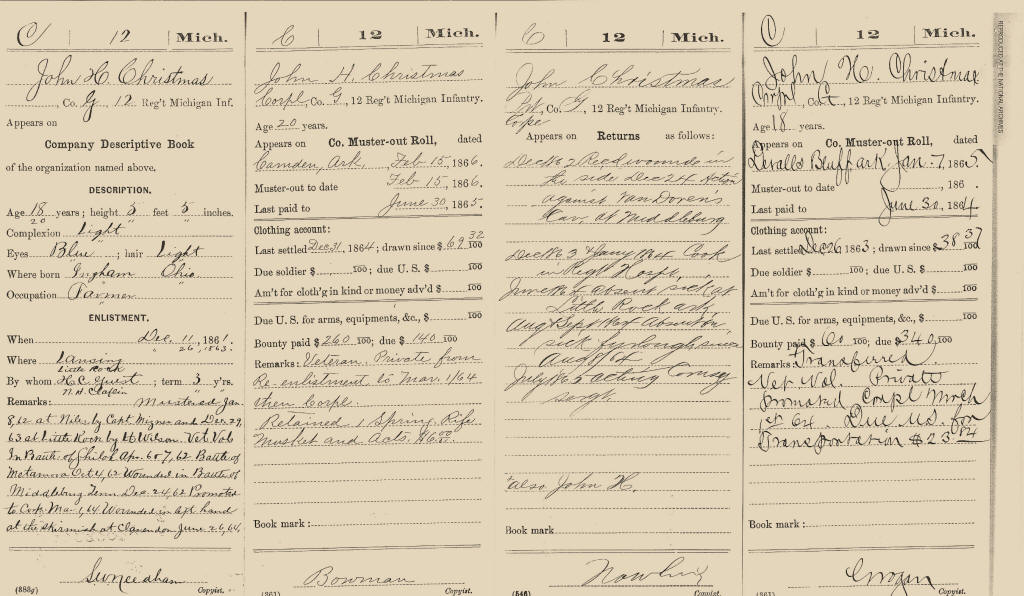 C | 12 | Mich.
John H. Christmas
, Co. G, 12 Reg't Michigan Inf.
Appears on
Company Descriptive Book
of the organization named above.
DESCRIPTION.
Age 18 years; height 5 feet 5 inches.
20
Complexion Light
Eyes Blue ; hair Light
Where born Ingham Ohio
Occupation Farmer
ENLISTMENT.
When Dec. 11, 1861.
" 26, 1863.
Where Lansing
Little Rock
By whom H.C. Guist ; term 3 y'rs.
N.H. Claflin
Remarks: Mustered Jan.
8, 62 at Niles by Capt Mizner and Dec 29,
63 at Little Rock by Lt Wilson. Vet Vol
In Battle of Shiloh Apr. 6 & 7, 62. Battle of
Metamora Oct 4, 62 Wounded in Battle of
Middleburg Tenn Dec. 24, 62 Promoted
to Corp. Mar 1, 64 Wounded in left hand
at the skirmish at Clarendon June 26, 64.
Copyist.
(383g)
C | 12 | Mich.
John H. Christmas
Corpl, Co. G, 12 Reg't Michigan Infantry.
Age 20 years.
Appears on Co. Muster-out Roll, dated
Camden, Ark, Feb 15, 1866.
Muster-out to date Feb 15, 1866.
Last paid to June 30, 1865.
Clothing account:
Last settled Dec 31, 1864; drawn since $ 69 32/100
Due soldier $ 100; due U. S. $ 100
Am't for cloth'g in kind or money adv'd $ 100
Due U. S. for arms, equipments, &c., $ 100
Bounty paid $ 260 100; due $ 140 100
Remarks: Veteran. Private from
Re-enlistment to Mar. 1/64
then Corpl
Retained 1 Spring. Rifle
Musket and Acts. $6.00
Book mark:
Bowman
(361) Copyist.
C | 12 | Mich.
John Christmas
Pvt, Co. G, 12 Reg't Michigan Infantry.
Corpl
Appears on Returns as follows:
Dec 1862 Recd wounds in
the side Dec 24 Action
against Van Doren's
Cav. at Middleburg
Dec 1863 & Jany 1864 Cook
in Regt Hospl.
June 1864 absent sick at
Little Rock ark.
Aug & Sept 1864 Absent on
sick furlough since
Aug 8/64
July 1865 acting Comsy
sergt.
also John H.
Book mark:
(546) Copyist.
C | 12 | Mich.
John H. Christmas
Corpl, Co. G, 12 Reg't Michigan Infantry.
Age 18 years.
Appears on Co. Muster-out Roll, dated
Devalls Bluff ark Jan. 7, 1865.
Muster-out to date , 186 .
Last paid to June 30, 1864.
Clothing account:
Last settled Dec 26 1863; drawn since $ 38 37/100
Due soldier $ 100; due U. S. $ 100
Am't for cloth'g in kind or money adv'd $ 100
Due U. S. for arms, equipments, &c., $ 100
Bounty paid $ 60 100; due $ 340 100
Remarks: Transferred
Vet. Vol. Private
promoted Corpl March
1st 64. Due U.S. for
Transportation $23 84
Book mark:
Grogan
(361) Copyist.
REPRODUCED AT THE NATIONAL ARCHIVES